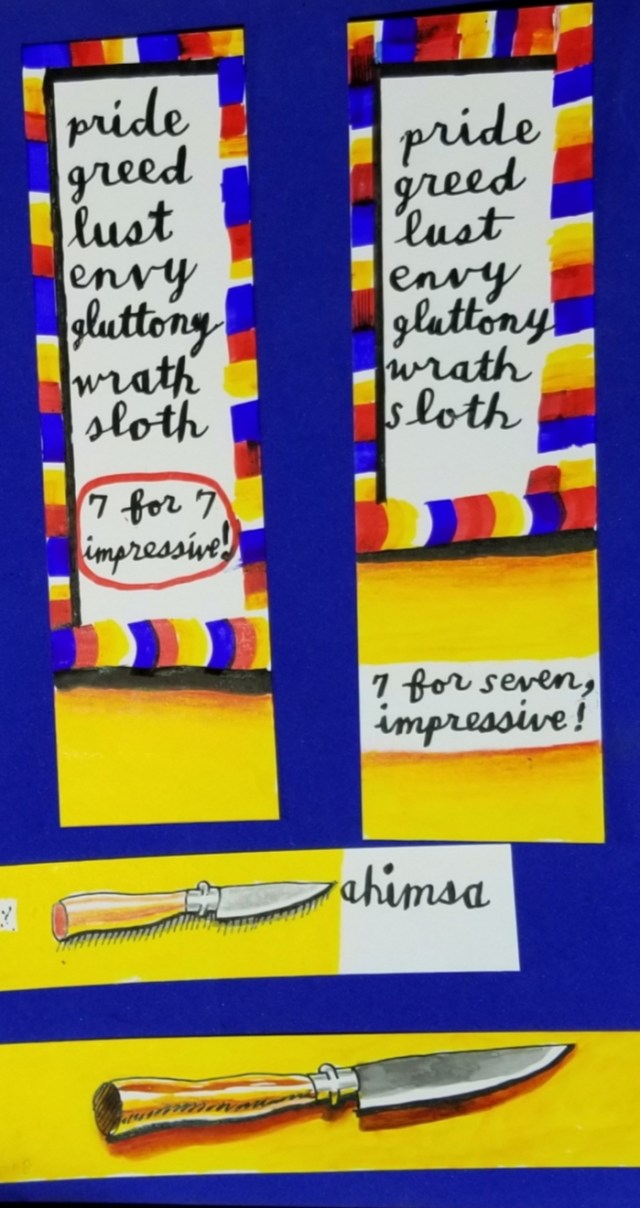 pride
greed
lust
envy
gluttony
wrath
sloth
7 for 7
impressive!
pride
greed
lust
envy
gluttony
wrath
sloth
7 for seven,
impressive!
ahimsa